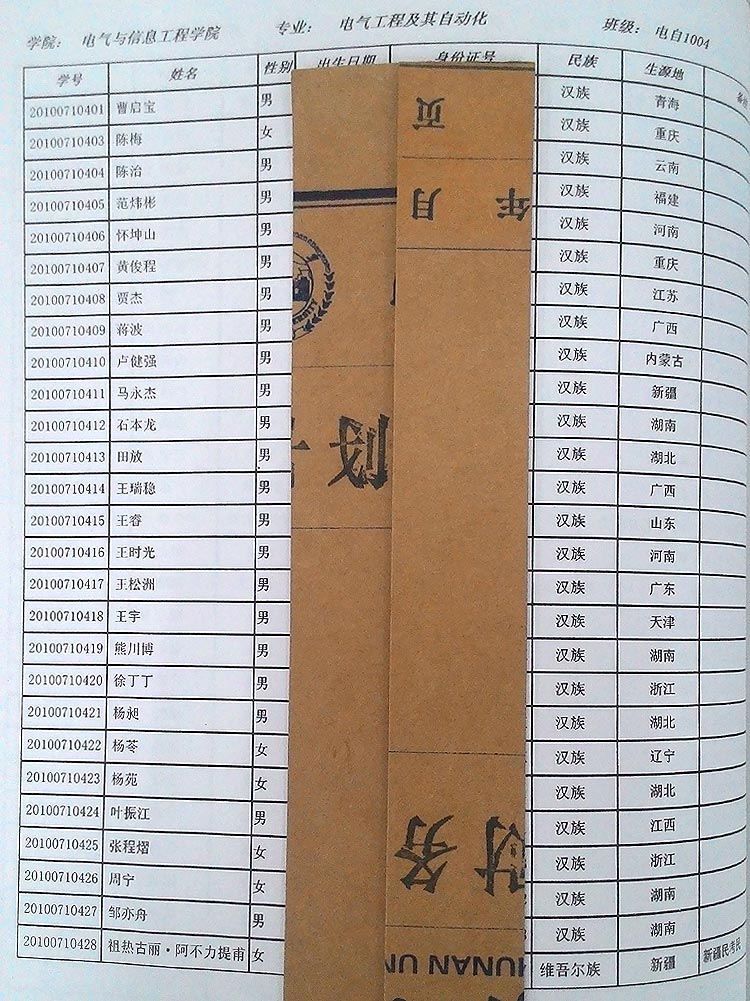 学院： 电气与信息工程学院 专业： 电气工程及其自动化 班级： 电自1004
学号 姓名 性别 出生日期 身份证号 民族 生源地
20100710401 曹启宝 男 汉族 青海
20100710403 陈梅 女 汉族 重庆
20100710404 陈治 男 汉族 云南
20100710405 范炜彬 男 汉族 福建
20100710406 怀坤山 男 汉族 河南
20100710407 黄俊程 男 汉族 重庆
20100710408 贾杰 男 汉族 江苏
20100710409 蒋波 男 汉族 广西
20100710410 卢健强 男 汉族 内蒙古
20100710411 马永杰 男 汉族 新疆
20100710412 石本龙 男 汉族 湖南
20100710413 田放 男 汉族 湖北
20100710414 王瑞稳 男 汉族 广西
20100710415 王睿 男 汉族 山东
20100710416 王时光 男 汉族 河南
20100710417 王松洲 男 汉族 广东
20100710418 王宇 男 汉族 天津
20100710419 熊川博 男 汉族 湖南
20100710420 徐丁丁 男 汉族 浙江
20100710421 杨昶 男 汉族 湖北
20100710422 杨苓 女 汉族 辽宁
20100710423 杨苑 女 汉族 湖北
20100710424 叶振江 男 汉族 江西
20100710425 张程熠 女 汉族 浙江
20100710426 周宁 女 汉族 湖南
20100710427 邹亦舟 男 汉族 湖南
20100710428 祖热古丽·阿不力提甫 女 维吾尔族 新疆 新疆民考民
页
年 月
财务
HUNAN UN